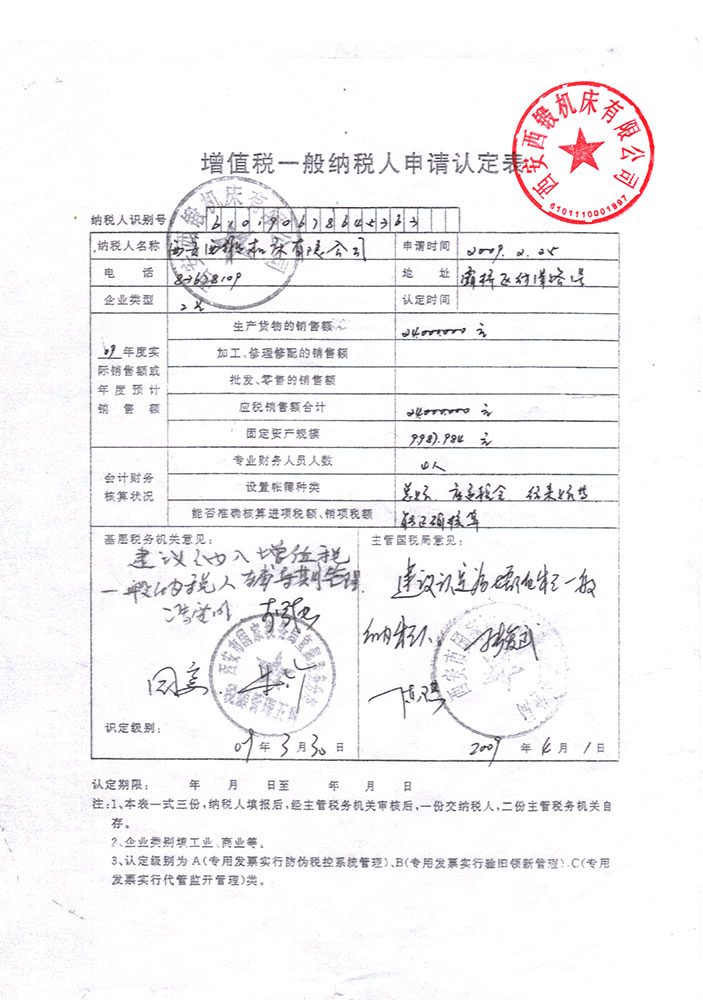 西安西锻机床有限公司
6101110001997
增值税一般纳税人申请认定表
纳税人识别号
纳税人名称 西安西锻机床有限公司 申请时间 2009.2.25
电 话 83678109 地 址
企业类型 工业 认定时间
09年度实际销售额或年度预计销售额
生产货物的销售额 24000000 元
加工、修理修配的销售额
批发、零售的销售额
应税销售额合计 24000000 元
固定资产规模 9987.984 元
会计财务核算状况
专业财务人员人数 四人
设置帐簿种类
能否准确核算进项税额、销项税额 能正确核算
基层税务机关意见:
建议纳入增值税
一般纳税人辅导期管理
同意
识定级别:
09年3月30日
主管国税局意见:
建议认定为增值税一般
纳税人
2009年4月1日
认定期限: 年 月 日至 年 月 日
注:1、本表一式三份,纳税人填报后,经主管税务机关审核后,一份交纳税人,二份主管税务机关自
存。
2、企业类别填工业、商业等。
3、认定级别为A(专用发票实行防伪税控系统管理)、B(专用发票实行验旧领新管理)、C(专用
发票实行代管监开管理)类。